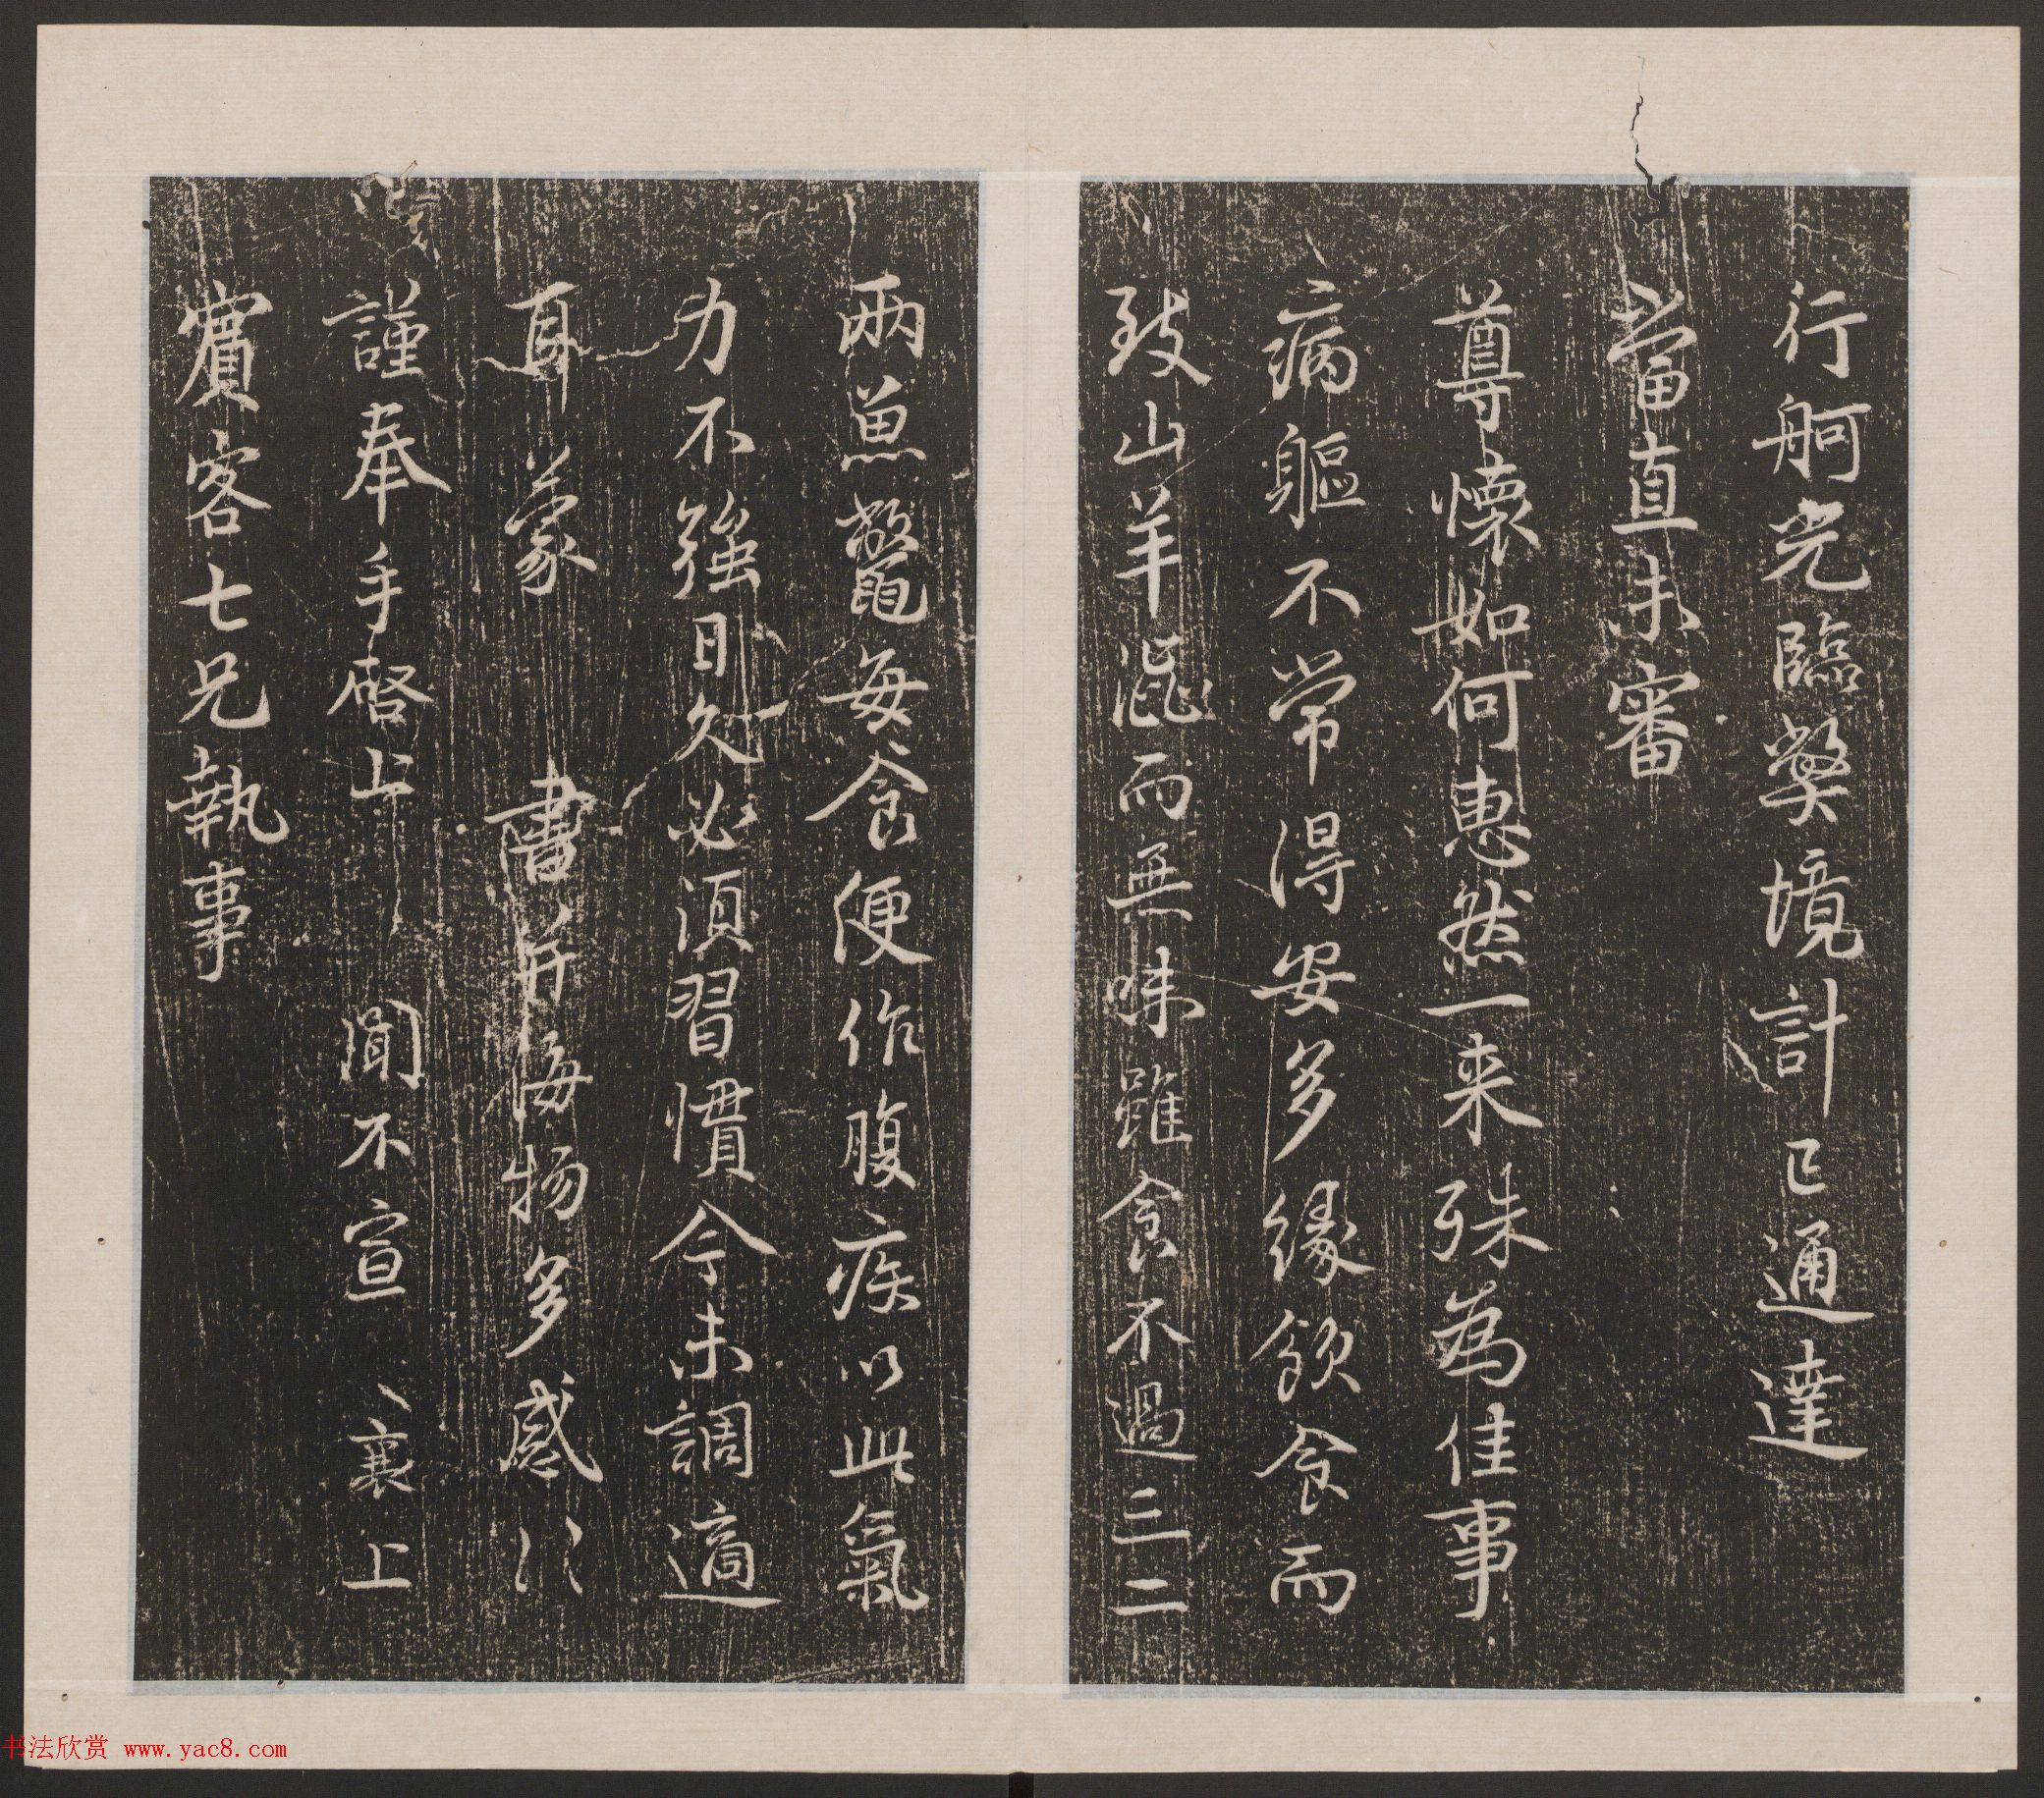 行舸光臨弊境計已通達
當直未審
尊懷如何惠然一来殊為佳事
病軀不常得安多緣飲食而
致山羊混而無味雖食不過三二
兩魚鼈每食便作腹疾以此氣
力不強日久必須習慣今未調適
耳蒙 書并海物多感〻
謹奉手啓上 聞不宣 襄上
賓客七兄執事
书法欣赏 www.yac8.com